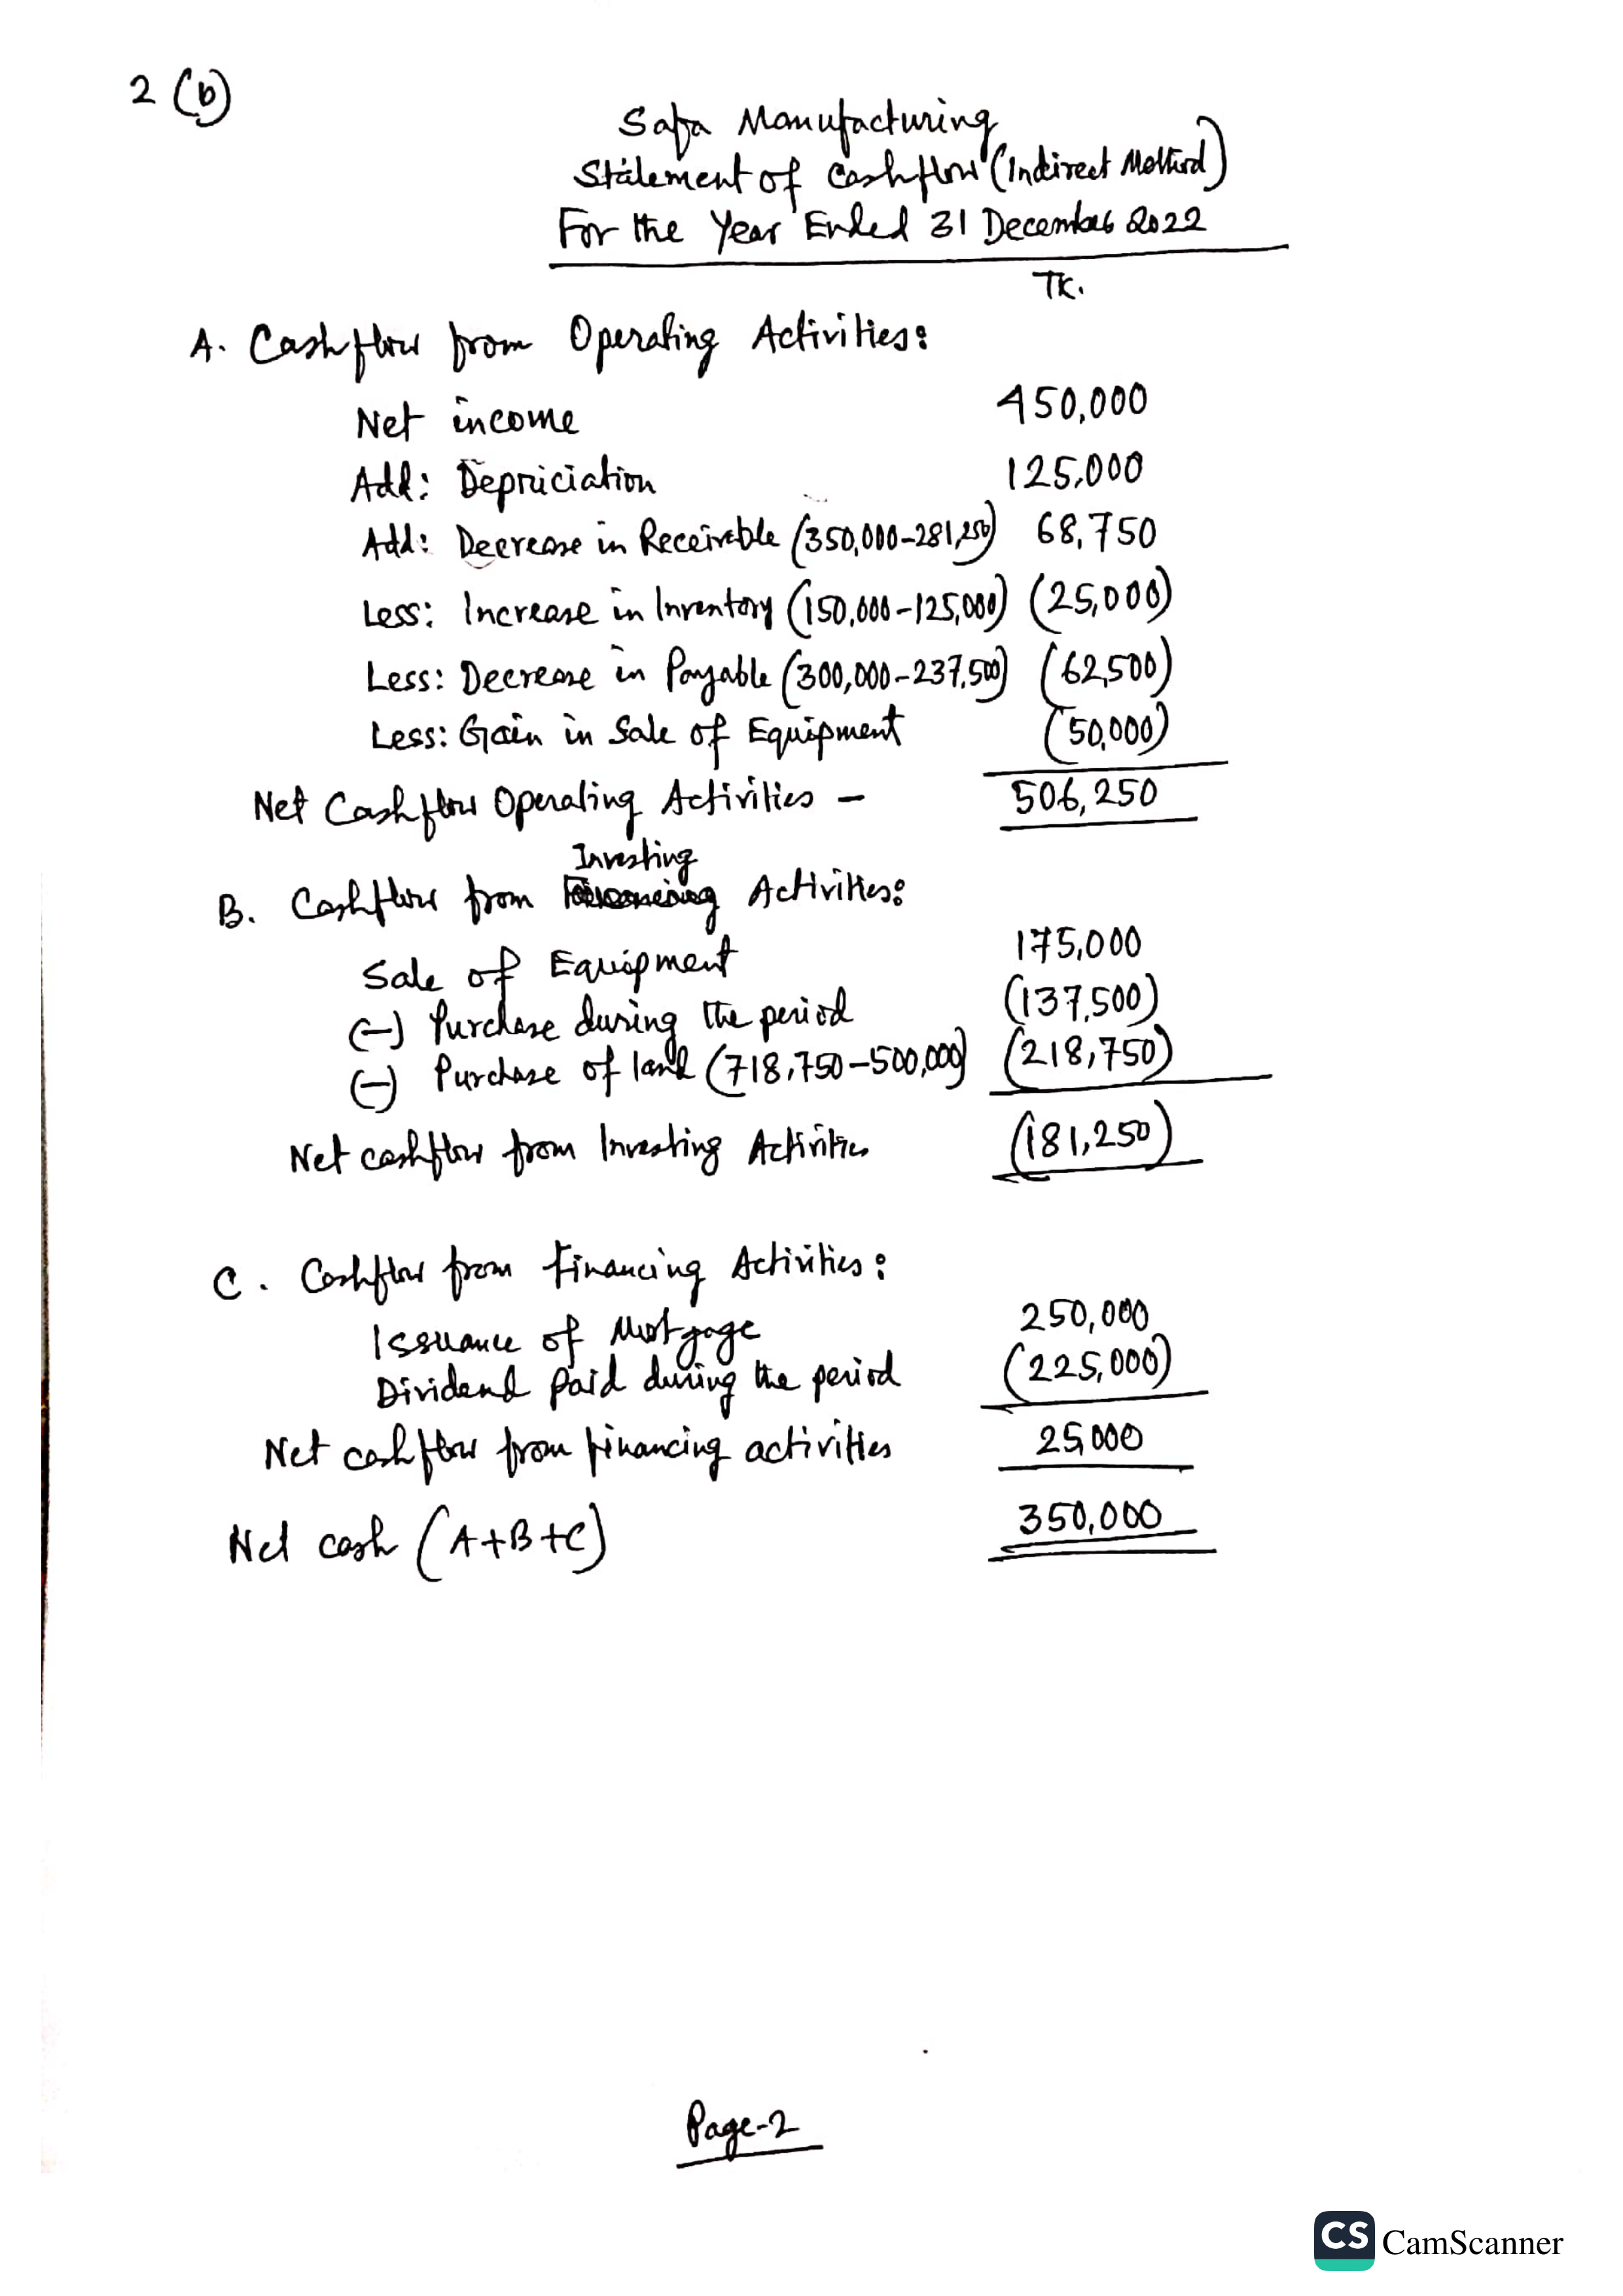 2 (b)
Safa Manufacturing
Statement of Cashflow (Indirect Method)
For the Year Ended 31 December 2022
TK.
A. Cashflow from Operating Activities:
Net income 450,000
Add: Depriciation 125,000
Add: Decrease in Receivable (350,000-281,250) 68,750
Less: Increase in Inventory (150,000-125,000) (25,000)
Less: Decrease in Payable (300,000-237,500) (62,500)
Less: Gain in Sale of Equipment (50,000)
Net Cashflow Operating Activities - 506,250
Investing
B. Cashflow from Activities:
Sale of Equipment 175,000
(-) Purchase during the period (137,500)
(-) Purchase of land (718,750-500,000) (218,750)
Net cashflow from Investing Activities (181,250)
C. Cashflow from Financing Activities:
Issuance of Mortgage 250,000
Dividend paid during the period (225,000)
Net cashflow from financing activities 25,000
Net cash (A+B+C) 350,000
Page-2
CS CamScanner